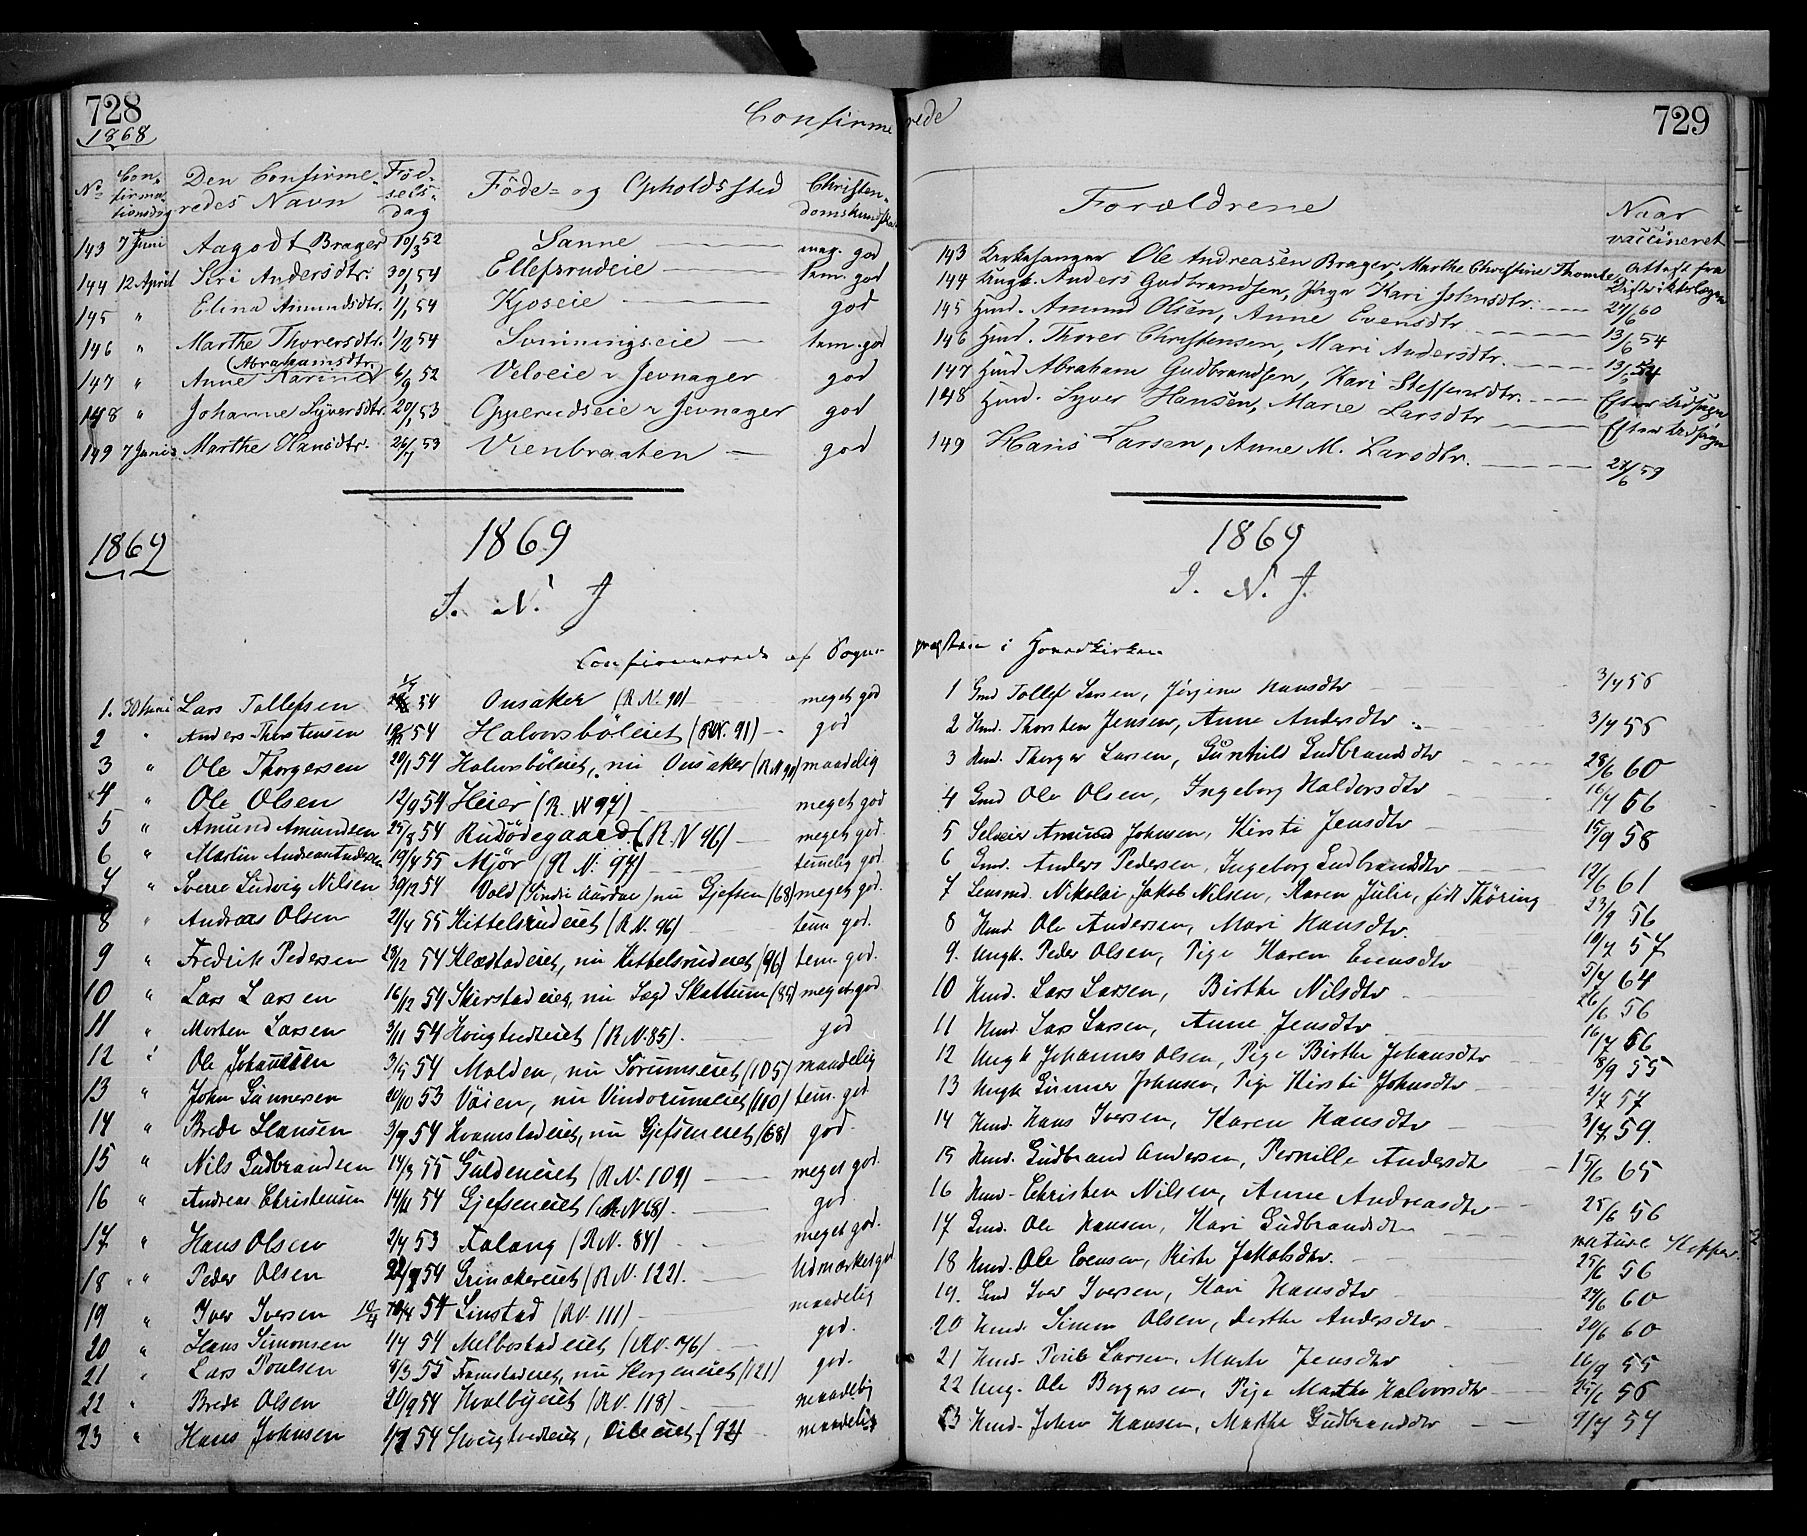 728
1868
Confirmerede
729
No Confirmationsdag Den Confirmeredes Navn Fødselsdag Føde- og Opholdssted Christendomskundskab Forældrene Naar vaccineret
143 7 Juni Aagodt Brager 10/3 52 Sanne meg. god
144 12 April Siri Andersdtr. 30/1 54 Ellefsrudeie tem. god
145 " Elina Amundsdtr. 1/1 54 Kjoseie god
146 " Marthe Thorersdtr. 54 Svinningseie tem. god
147 " Anne Karine (Abrahamsdtr.) 6/9 52 Veloeie i Jevnager god
148 " Johanne Syversdtr. 20/1 53 Opperudseie i Jevnager god
149 7 Juni Marthe Hansdtr. 26/7 53 Vienbraaten god
143 Kirkesanger Ole Andreasen Brager, Marthe Christine Thomle, Attest fra Distriktslægen
144 Ungk. Anders Gudbrandsen, Pige Kari Johnsdtr. 27/6 60
145 Husd. Amund Olsen, Anne Evensdtr 13/6 54
146 Husd. Thorer Christensen, Mari Andersdtr. 13/6 54
147 Husd Abraham Gudbrandsen, Kari Steffensdtr. Efter Udsagn
148 Husd. Syver Hansen, Marie Larsdtr Efter Udsagn
149 Hans Larsen, Anne M. Larsdtr. 27/6 59
1869
1869
I. N. J
1869
I. N. J.
Confirmerede af Sognepræsten i Hovedkirken
1. 30 Mai Lars Tollefsen 54 Onsaker (R N. 90) meget god
2 " Anders Thorstensen 54 Halvorsböleiet (RN. 91) god
3 " Ole Thorgersen 20/1 54 Halvorsböleiet, nu Onsaker (RN 90) maadelig
4 " Ole Olsen 12/9 54 Heier (R. N 97) meget god
5 " Amund Amundsen 25/8 54 Rudsödegaard (R. N 96) meget god.
6 " Martin Andreas Andersen 19/4 55 Mjör (R N. 97) temelig god.
7 " Sverre Ludvig Nilsen 30/12 54 Vold (Söndre Aurdal) nu Gjefsen (68) meget god.
8 " Andreas Olsen 21/4 55 Kittelsrudeiet (R N. 96) tem god.
9 " Fredrik Pedersen 28/12 54 Klædstadeiet, nu Kittelsrudeiet (96) tem. god.
10 " Lars Larsen 16/12 54 Skirstadeiet, nu Sögd Skattum (85) meget god
11 " Morten Larsen 3/11 54 Hougtvedteiet (R N. 85). god
12 " Ole Johansen 3/5 54 Molden, nu Sörumseiet (105) maadelig
13 " John Gunnersen 20/10 53 Vöien, nu Vindorumeiet (110) tem. god
14 " Brede Hansen 3/9 54 Hvamstadeiet, nu Gjefseneiet (68) god.
15 " Nils Gudbrandsen 14/3 55 Guldeneiet (R N. 109) meget god.
16 " Andreas Christensen 14/11 54 Gjefseneiet (R N 68). god.
17 " Hans Olsen 2/7 53 Falang (R N. 84) meget god.
18 " Peder Olsen 54 Grinakereiet (R N. 122). Udmærket god
19 " Iver Iversen 12/4 54 Linstad (R N. 111) maadelig
20 " Hans Simonsen 1/7 54 Melbostadeiet (RN. 76) god.
21 " Lars Poulsen 8/3 55 Framstadeiet, nu Horgeneiet (121) god.
22 " Brede Olsen 20/9 54 Hvalbyeiet (RN. 118) maadelig
23 " Hans Johnsen 54 Hougtvedteiet, Lileeiet (92) maadelig
1 Gmd Tollef Larsen, Jörgine Hansdtr 3/7 56
2 Husd. Thorsten Jensen, Anne Andersdtr. 3/7 55
3 Husd. Thorger Larsen, Gunhild Gudbrandsdtr 28/6 60
4 Gmd Ole Olsen, Ingeborg Haldorsdtr 16/7 56
5 Selveier Amund Johnsen, Kirsti Jensdtr 15/9 58
6 Gmd. Anders Pedersen, Ingeborg Gudbrandsdtr 12/6 61
7 Lensmd. Nikolai Jakob Nilsen, Karen Julie, födt Thöring 23/9 56
8 Husd. Ole Andersen, Mari Hansdtr. 10/7 57
9. Ungk. Peder Olsen, Pige Karen Evensdtr 5/7 64
10 Husd. Lars Larsen, Birthe Nilsdtr 26/6 56
11 Husd. Lars Larsen, Anne Jensdtr 16/7 56
12 Ungk Johannes Olsen, Pige Birthe Johansdtr 8/9 55
13 Ungk Gunner Johnsen, Pige Kirsti Johnsdtr 2/7 57
14 Husd. Hans Iversen, Karen Hansdtr 3/7 59.
15 Husd. Gudbrand Andersen, Pernille Andersdtr 15/6 65
16 Husd. Christen Nilsen, Anne Andreasdtr 25/6 56
17 Gmd. Ole Hansen, Kari Gudbrandsdtr nature Kopper.
18 Husd. Ole Evensen, Kirsti Jakobsdtr. 25/6 56
19. Gmd Iver Iversen, Kari Hansdtr 27/6 60
20 Husd. Simen Olsen, Dorthe Andersdtr 20/6 60
21 Husd. Povel Larsen, Marte Jensdtr 16/9 55
22 Ung. Ole Borgersen, Pige Marthe Halvorsdtr 25/6 56
23 Husd. John Hansen, Marthe Gudbrandsdtr 9/7 57